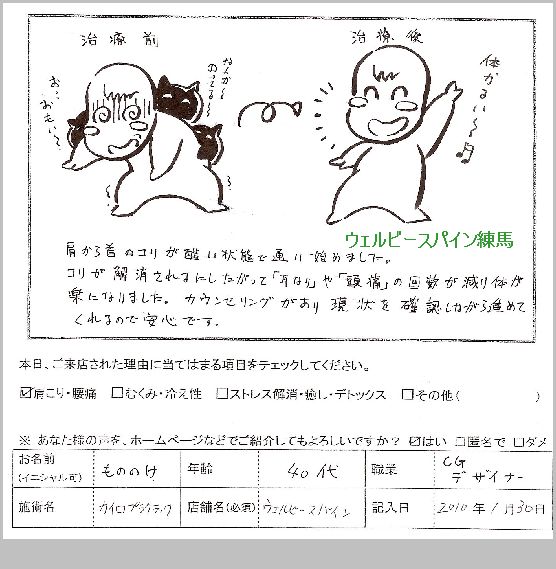 治療前
治療後
お、おもい〜
なんか〜のってる〜
体かるい〜
ウェルビースパイン練馬
肩から首のコリが酷い状態で通い始めました。
コリが解消されるにしたがって「耳なり」や「頭痛」の回数が減り体が
楽になりました。カウンセリングがあり現状を確認しながら進めて
くれるので安心です。
本日、ご来店された理由に当てはまる項目をチェックしてください。
☑肩こり・腰痛 □むくみ・冷え性 □ストレス解消・癒し・デトックス □その他( )
※ あなた様の声を、ホームページなどでご紹介してもよろしいですか？ ☑はい □匿名で □ダメ
お名前 (イニシャル可) もののけ 年齢 40代 職業 CGデザイナー
施術名 カイロプラクティック 店舗名(必須) ウェルビースパイン 記入日 2010年1月30日